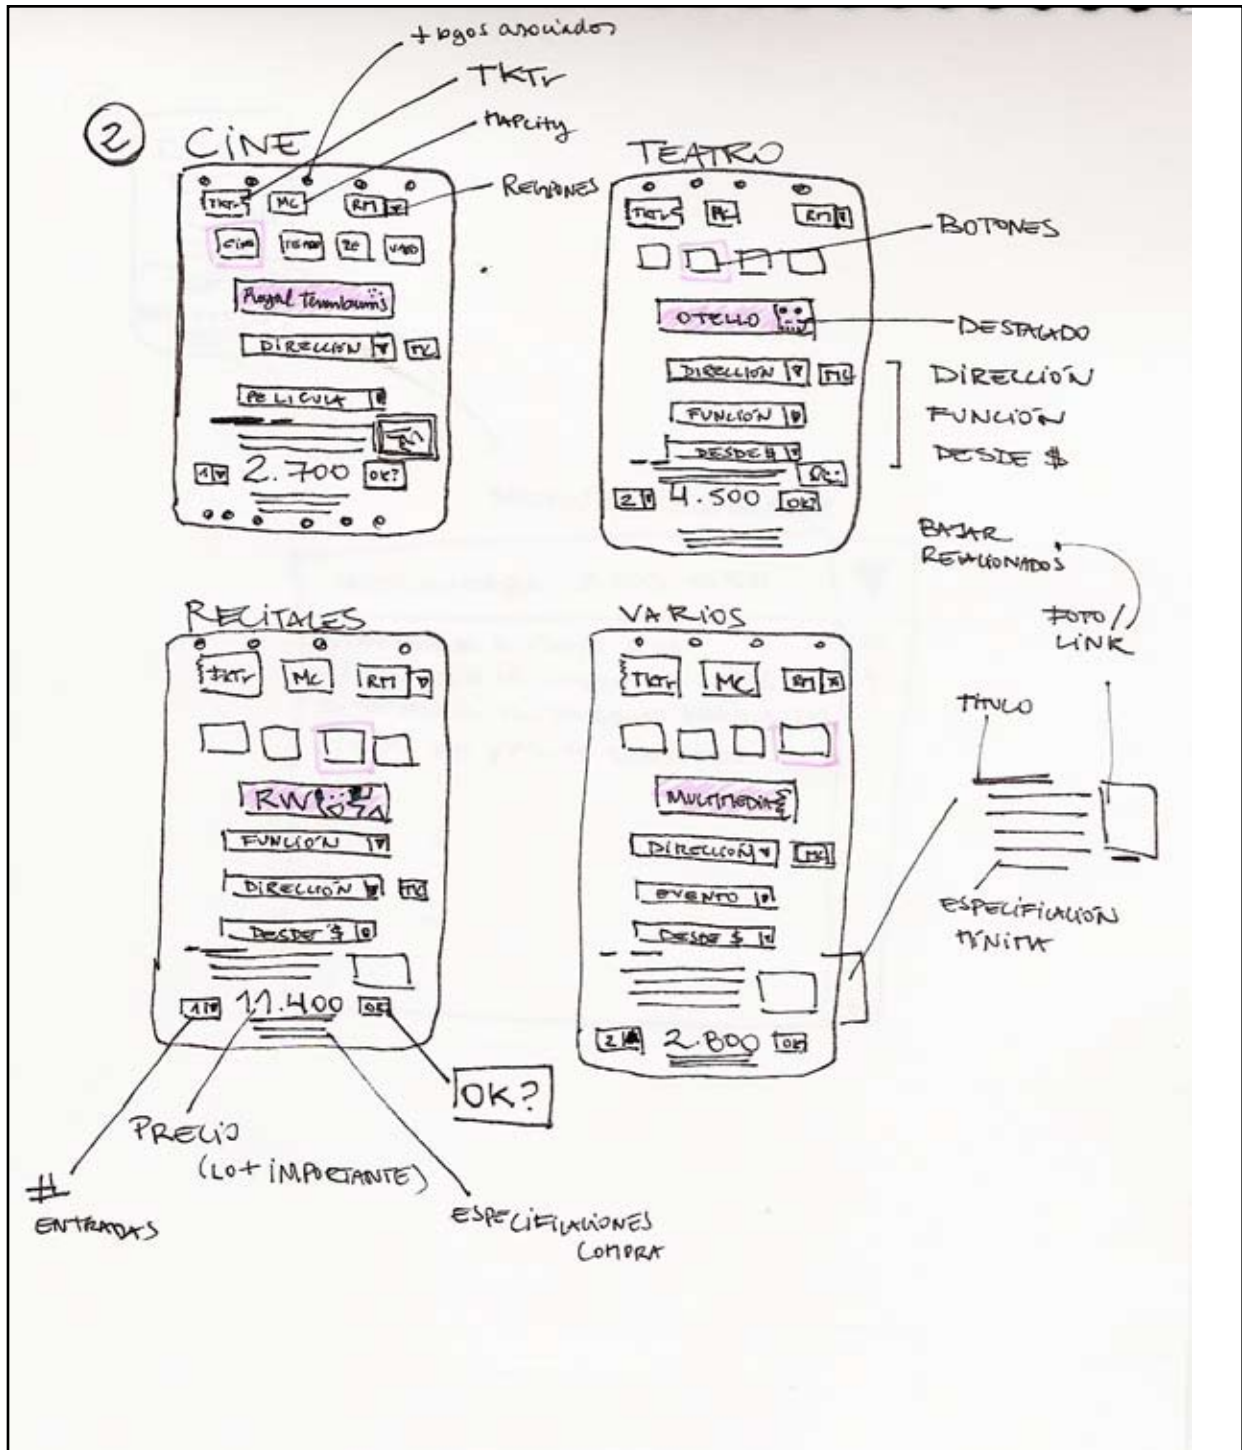 + logos asociados
TKTr
Mapcity
REGIONES
2
CINE
TKTr
MC
RM
CINE
VARIO
Royal Tenenbaums
DIRECCIÓN
MC
PELICULA
1
2.700
OK?
TEATRO
TKTr
MC
RM
BOTONES
OTELLO
DESTACADO
DIRECCIÓN
MC
FUNCIÓN
DESDE $
2
4.500
OK?
DIRECCIÓN
FUNCIÓN
DESDE $
BAJAR
RELACIONADOS
FOTO/
LINK
TÍTULO
ESPECIFICACIÓN
MÍNIMA
RECITALES
TKTr
MC
RM
RW
FUNCIÓN
DIRECCIÓN
MC
DESDE $
1
11.400
OK
VARIOS
TKTr
MC
RM
MULTIMEDIA
DIRECCIÓN
MC
EVENTO
DESDE $
2
2.800
OK
OK?
PRECIO
(LO + IMPORTANTE)
#
ENTRADAS
ESPECIFICACIONES
COMPRA